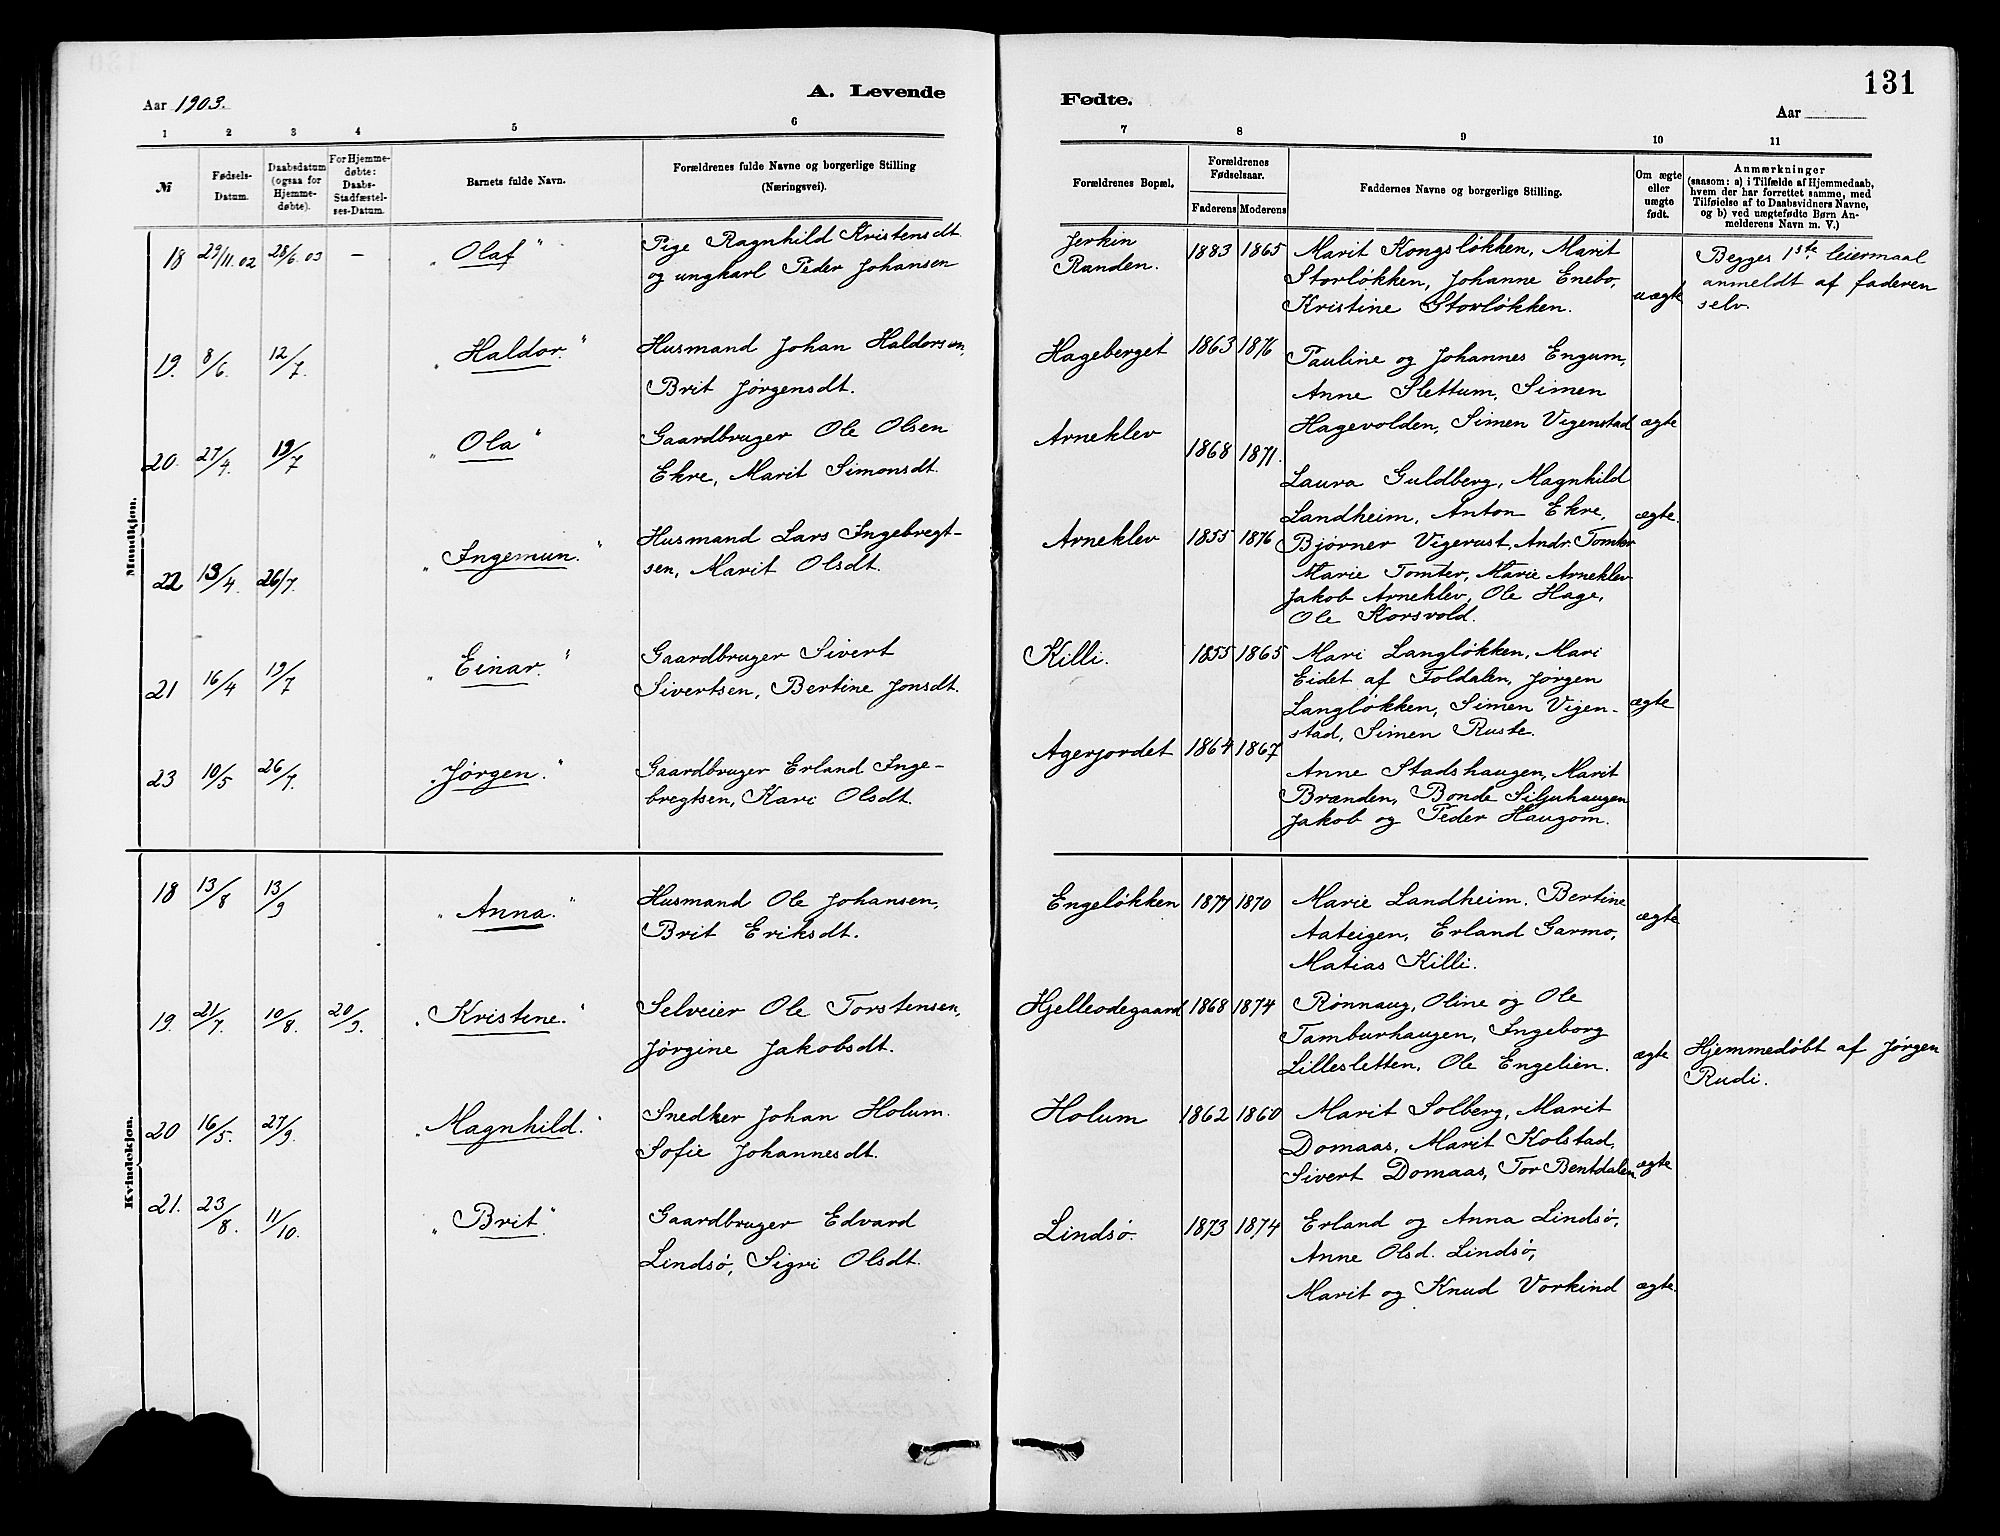 Aar 1903.
A. Levende
1 2 3 4 5 6
№
Fødsels-
Datum.
Daabsdatum
(ogsaa for
Hjemme-
døbte).
For Hjemme-
døbte:
Daabs-
Stadfæstel-
ses-Datum.
Barnets fulde Navn.
Forældrenes fulde Navne og borgerlige Stilling
(Næringsvei).
Mandkjøn.
18 29/11.02 28/6.03 – „Olaf“ Pige Ragnhild Kristensdt.
og ungkarl Peder Johansen
19. 8/6. 12/7. „Haldor.“ Husmand Johan Haldorsen,
Brit Jørgensdt.
20. 27/4. 19/7 „Ola“ Gaardbruger Ole Olsen
Ekre, Marit Simonsdt.
22 13/4. 26/7. „Ingemun.“ Husmand Lars Ingebregt-
sen, Marit Olsdt.
21 16/4 19/7 „Einar.“ Gaardbruger Sivert
Sivertsen, Bertine Jonsdt.
23 10/5 26/7. „Jørgen.“ Gaardbruger Erland Inge-
bregtsen, Kari Olsdt.
Kvindekjøn.
18 13/8 13/9 „Anna.“ Husmand Ole Johansen,
Brit Eriksdt.
19. 21/7. 10/8. 20/9. „Kristine.“ Selveier Ole Torstensen,
Jørgine Jakobsdt.
20 16/5. 27/9. „Magnhild.“ Snedker Johan Holum.
Sofie Johannesdt.
21. 23/8. 11/10. „Brit.“ Gaardbruger Edvard
Lindsø, Sigri Olsdt.
131
Fødte.
Aar
7 8 9 10 11
Forældrenes Bopæl.
Forældrenes
Fødselsaar.
Faderens Moderens
Faddernes Navne og borgerlige Stilling.
Om ægte
eller
uægte
født.
Anmærkninger
(saasom: a) i Tilfælde af Hjemmedaab,
hvem der har forrettet samme, med
Tilføielse af to Daabsvidners Navne,
og b) ved uægtefødte Børn An-
melderens Navn m. V.)
Jerkin
Randen. 1883 1865 Marit Kongsløkken, Marit
Storløkken, Johanne Enebo,
Kristine Storløkken. uægte
Begges 1ste leiermaal
anmeldt af faderen
selv.
Hageberget 1863 1876 Pauline og Johannes Engum,
Anne Slettum, Simen
Hagevolden, Simen Vigenstad ægte
Arneklev 1868 1871. Laura Guldberg, Magnhild
Landheim, Anton Ekre, ægte.
Arneklev 1855 1876 Bjørner Vigerust, Andr. Tomter
Marie Tomter, Marie Arneklev
Jakob Arneklev, Ole Hage,
Ole Korsvold.
Killi. 1855 1865 Mari Langløkken, Mari
Eidet af Foldalen, Jørgen
Langløkken, Simen Vigen- ægte
stad, Simen Ruste.
Agerjordet 1864 1867 Anne Stadshaugen, Marit
Brænden, Bonde Siljuhaugen
Jakob og Peder Haugom.
Engeløkken 1870 Marie Landheim, Bertine
Aateigen, Erland Garmo, ægte
Matias Killi.
Hjelleodegaard 1868 1874 Rønnaug, Oline og Ole
Tamburhaugen, Ingeborg
Lillesletten, Ole Engelien. ægte
Hjemmedøbt af Jørgen
Rudi.
Holum 1862 1860 Marit Solberg, Marit
Domaas, Marit Kolstad,
Sivert Domaas, Tor Bentdalen ægte
Lindsø 1873 1874 Erland og Anna Lindsø,
Anne Olsd. Lindsø,
Marit og Knud Vorkind ægte.